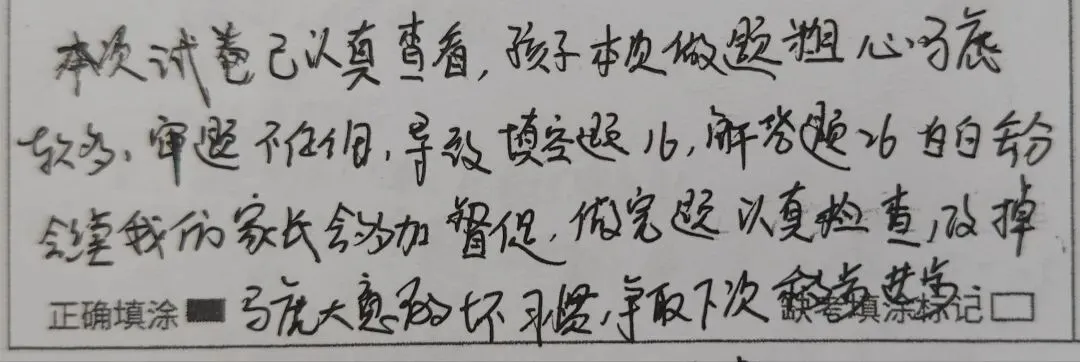 本次试卷已认真查看,孩子本次做题粗心马虎
较多、审题不仔细,导致填空题16,解答题26白白丢分
我们家长会多加督促,做完题认真检查,改掉
正确填涂 马虎大意的坏习惯,争取下次 缺考填涂标记